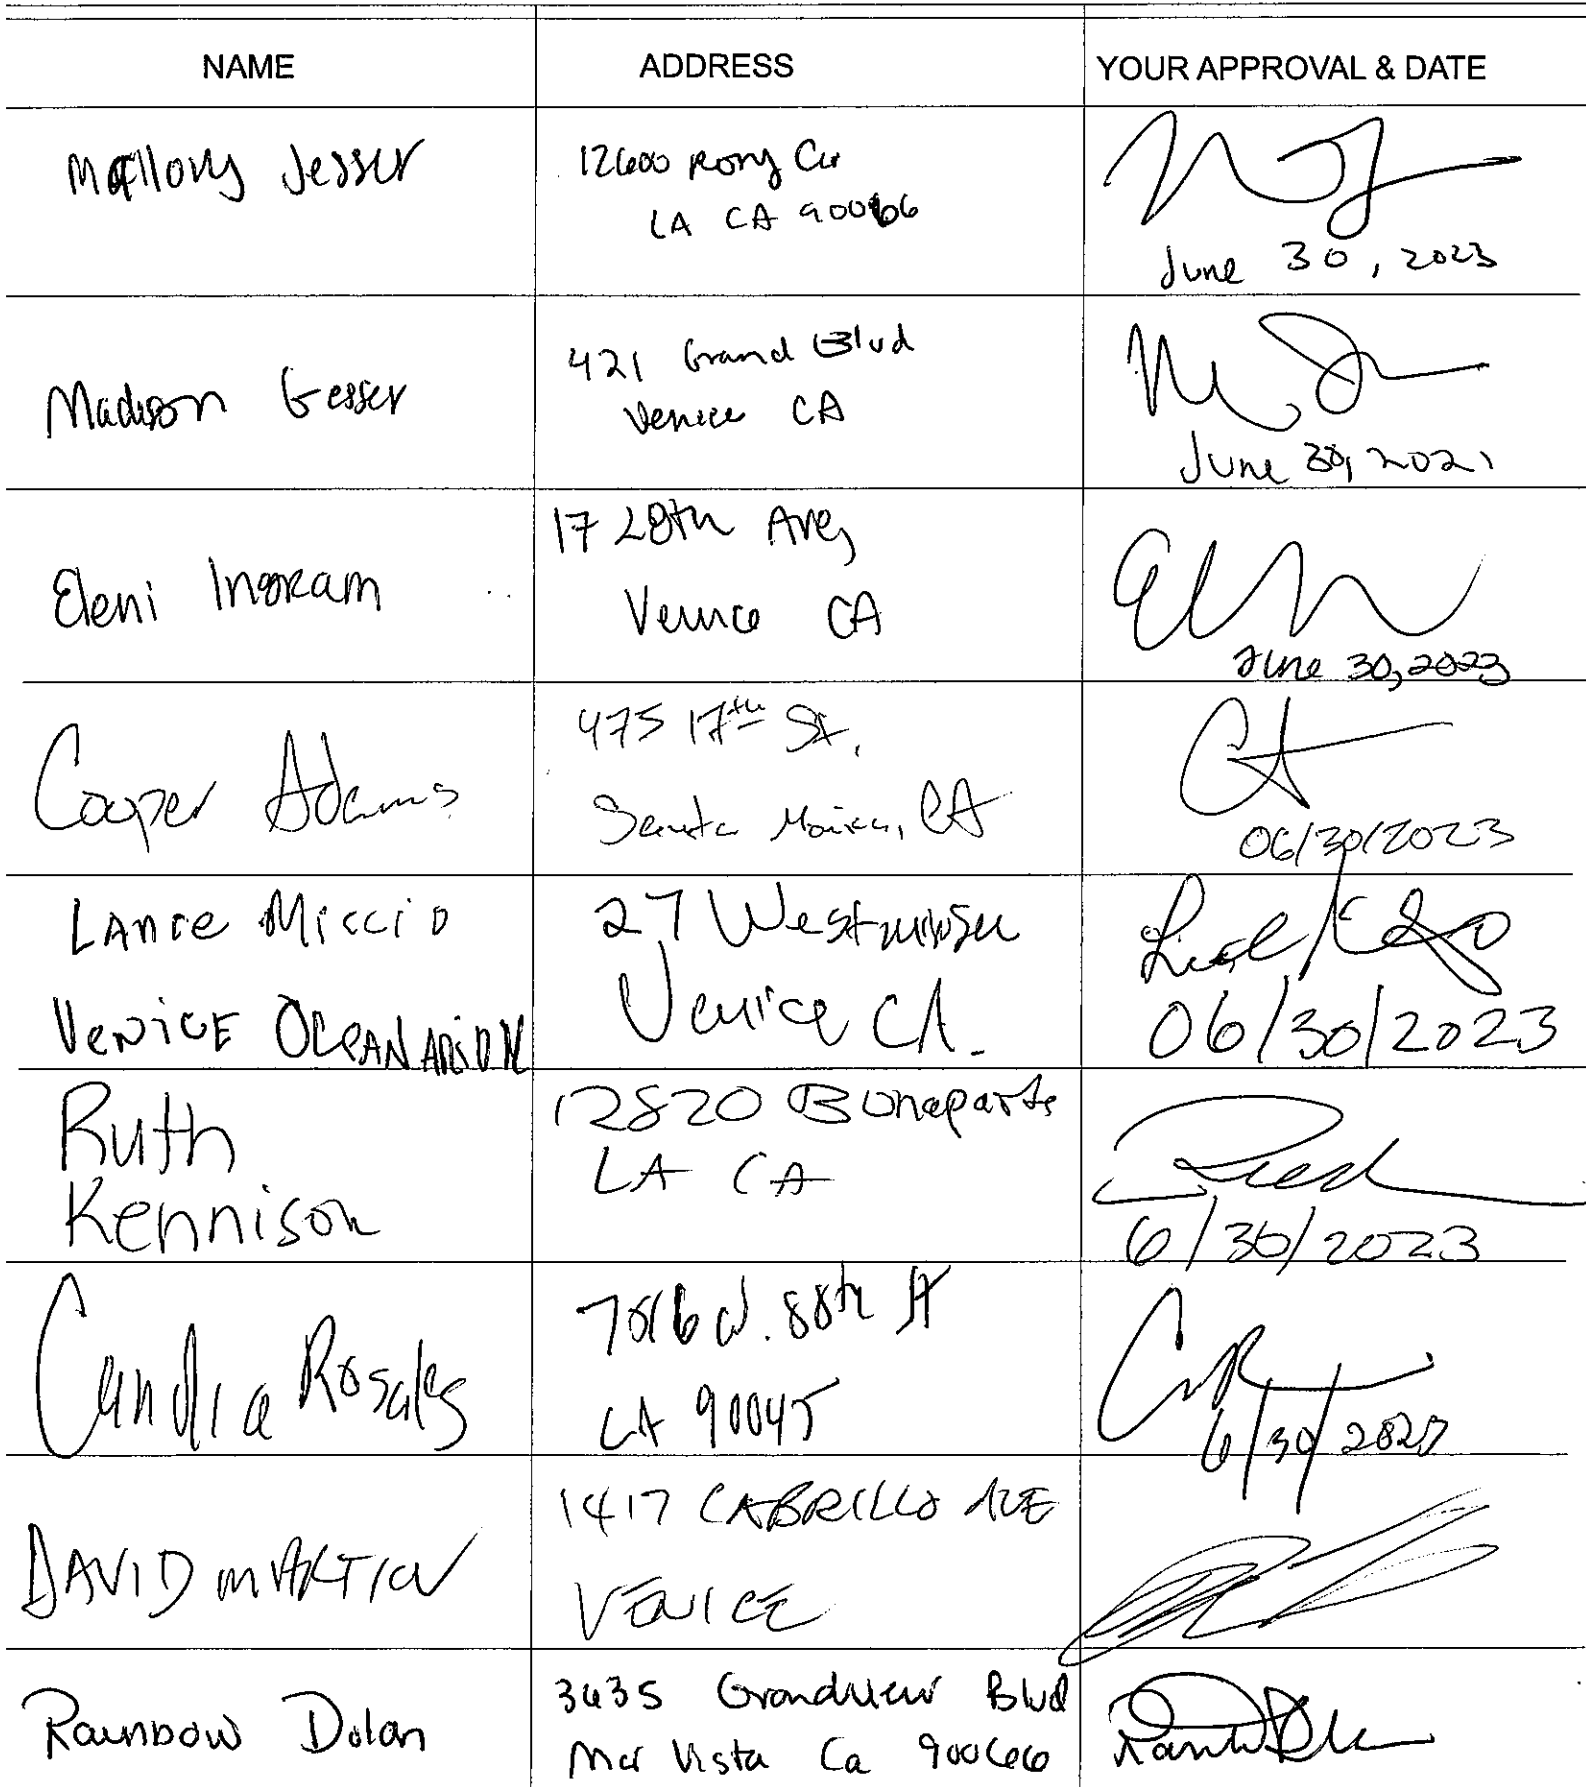 NAME ADDRESS YOUR APPROVAL & DATE
Mallory Jesser 12600 Rony Cir
LA CA 90066
June 30, 2023
Madison Gesser 421 Grand Blvd
Venice CA
June 30, 2021
Eleni Ingram 17 28th Ave,
Venice CA
June 30, 2023
Cooper Adams 475 17th St.
Santa Monica, CA
06/30/2023
Lance Miccio 27 Westminster
Venice Oceanarium Venice CA.
06/30/2023
Ruth 12820 Bonaparte
Kennison LA CA
6/30/2023
Candia Rosales 7816 W. 88th St
LA 90045
6/30/
DAVID MARTIN 1417 CABRILLO AVE
VENICE
Rainbow Dolan 3435 Grandview Blvd
Mar Vista Ca 90066